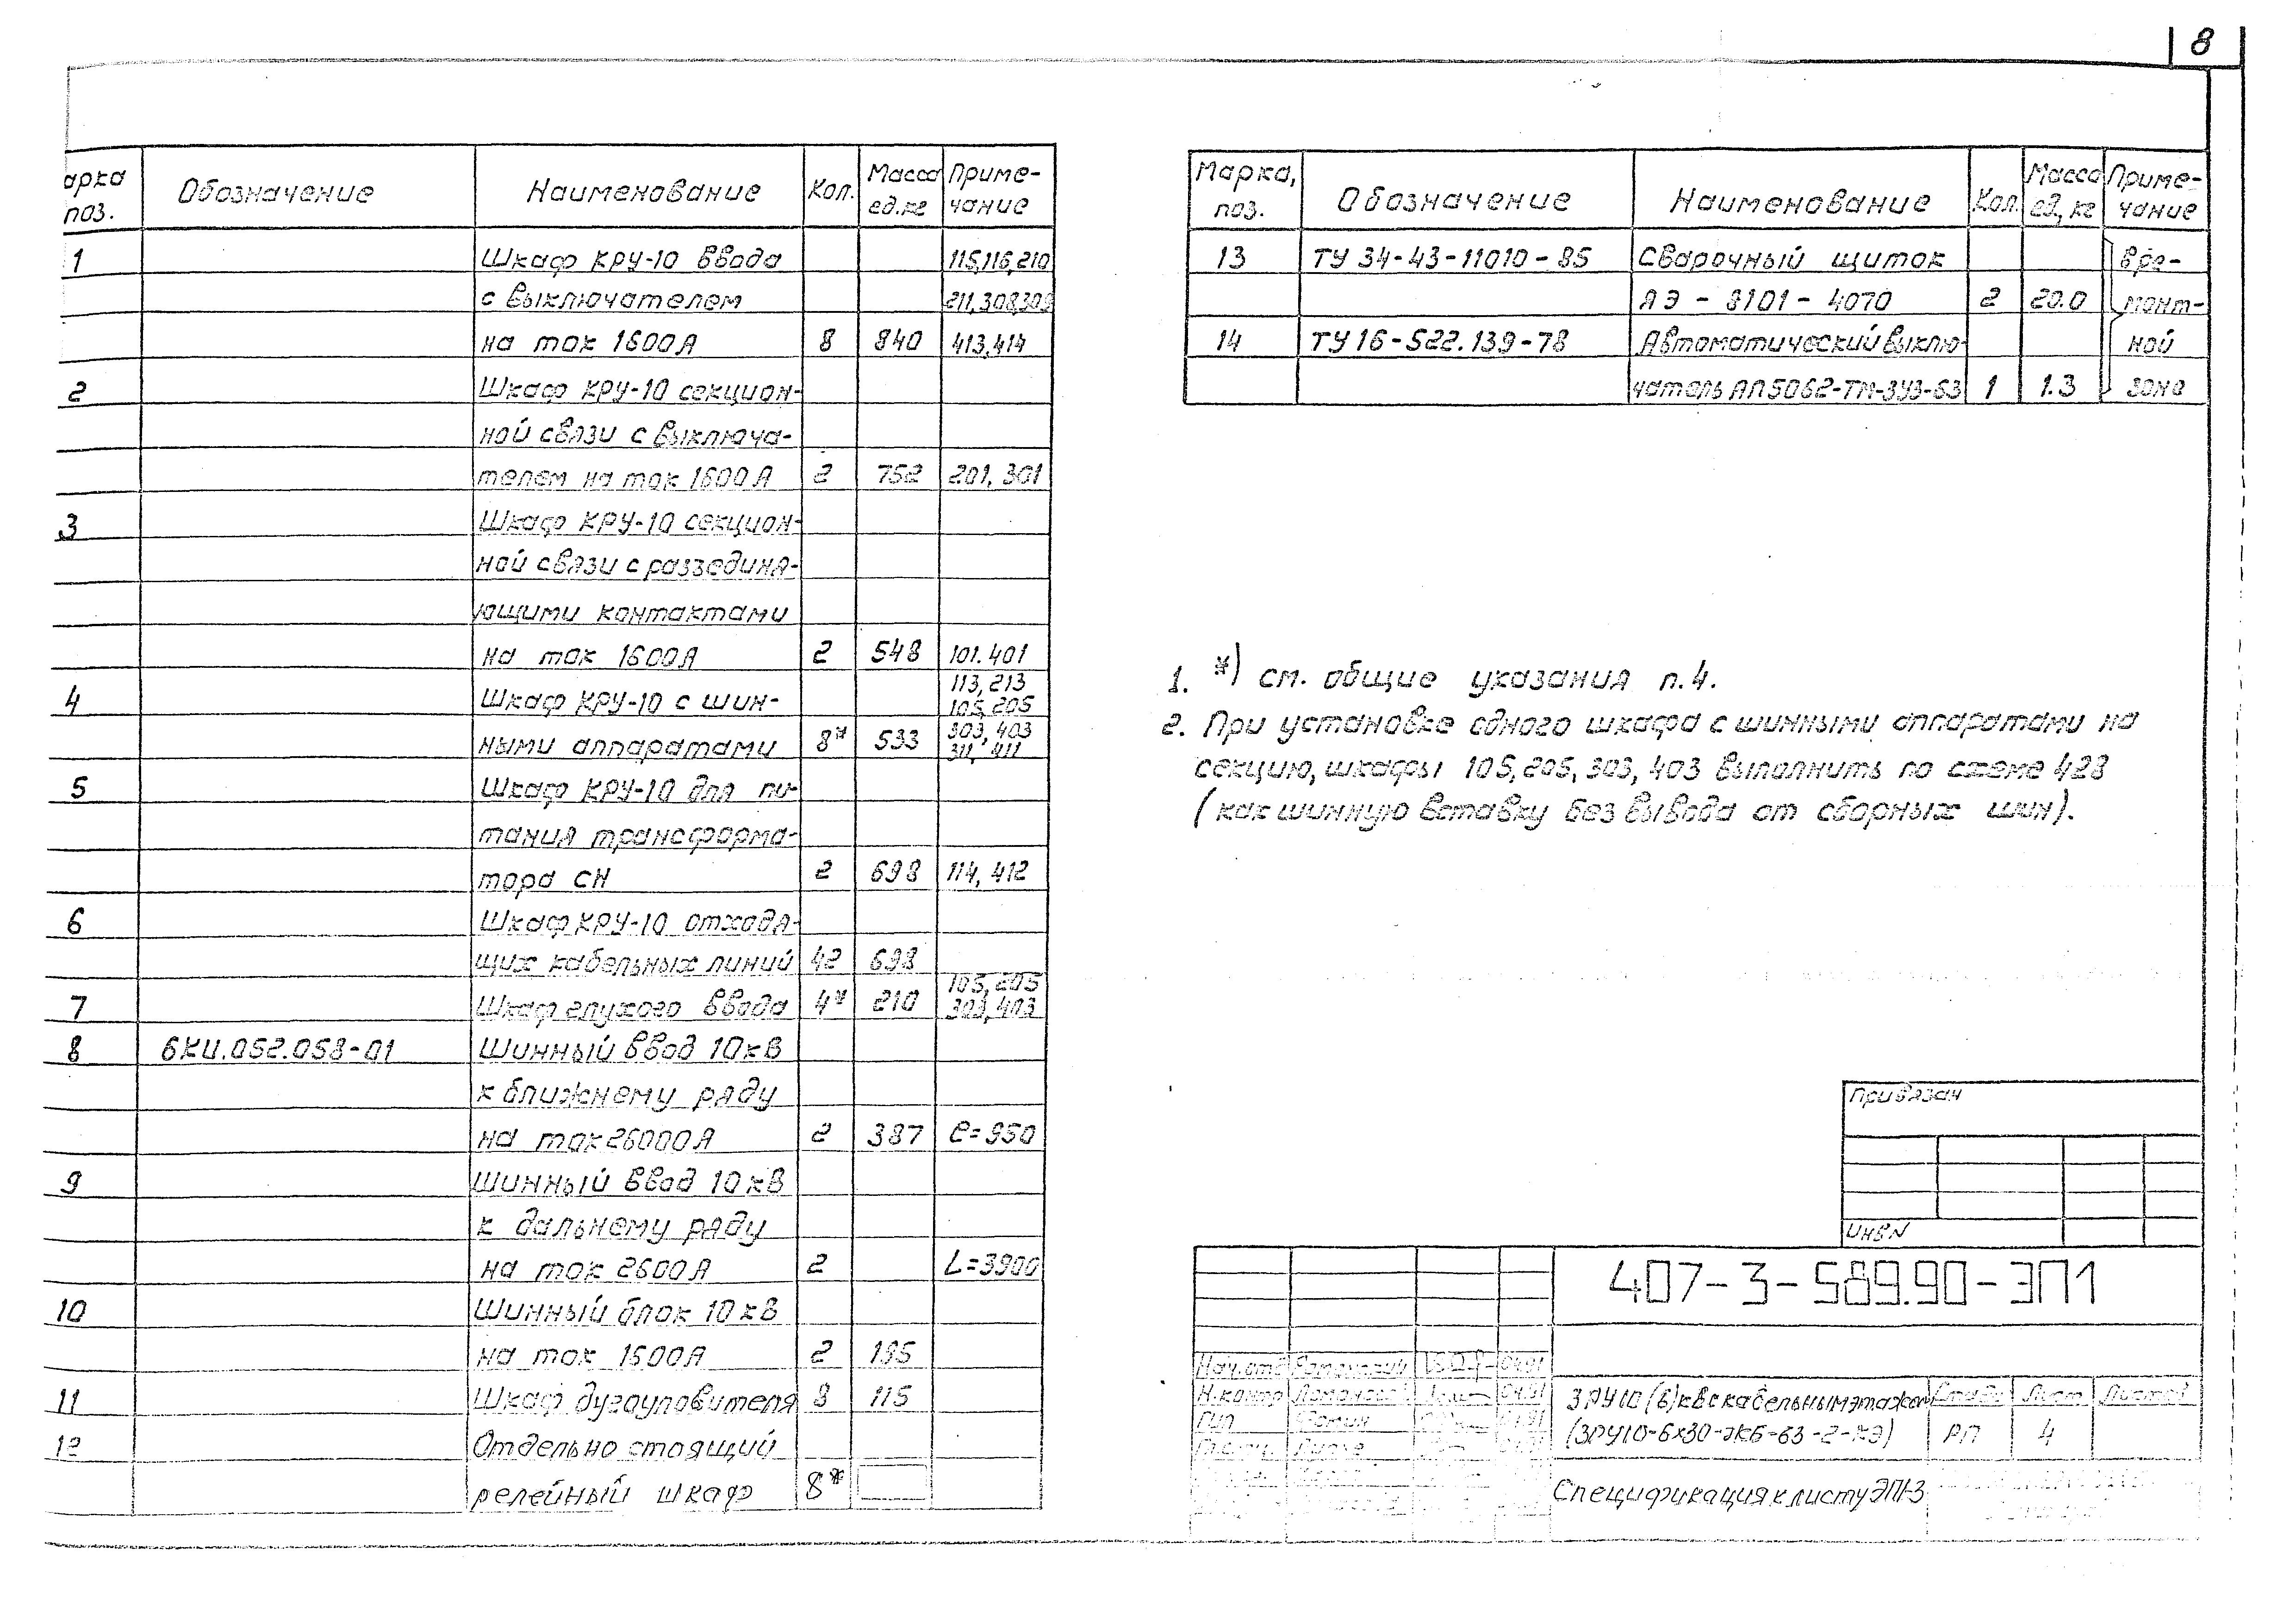 8
арка поз. Обозначение Наименование Кол. Масса ед.кг Приме-чание
1 Шкаф КРУ-10 ввода 115,116,210
с выключателем 211,308,309
на ток 1600А 8 840 413,414
2 Шкаф КРУ-10 секцион-
ной связи с выключа-
телем на ток 1600А 2 752 201, 301
3 Шкаф КРУ-10 секцион-
ной связи с разъединя-
ющими контактами
на ток 1600А 2 548 101. 401
4 Шкаф КРУ-10 с шин- 113, 213 105, 205
ными аппаратами 8* 533 303, 403 311, 411
5 Шкаф КРУ-10 для пи-
тания трансформа-
тора СН 2 698 114, 412
6 Шкаф КРУ-10 отходя-
щих кабельных линий 42 698
7 Шкаф глухого ввода 4* 210 105, 205 303, 403
8 6КШ.052.058-01 Шинный ввод 10кВ
к ближнему ряду
на ток 26000А 2 387 ℓ=950
9 Шинный ввод 10кВ
к дальнему ряду
на ток 2600А 2 L=3900
10 Шинный блок 10кВ
на ток 1600А 2 195
11 Шкаф дугоуловителя 8 115
12 Отдельно стоящий
релейный шкаф 8*
Марка, поз. Обозначение Наименование Кол. Масса ед, кг Приме-чание
13 ТУ 34-43-11010-85 Сварочный щиток В ре-
ЯЭ-8101-4070 2 20.0 монт-
14 ТУ 16-522.139-78 Автоматический выклю- ной
чатель АП5062-ТМ-3У3-63 1 1.3 зоне
1. *) см. общие указания п.4.
2. При установке одного шкафа с шинными аппаратами на
секцию, шкафы 105, 205, 303, 403 выполнить по схеме 428
(как шинную вставку без вывода от сборных шин).
Привязан
Инв N
407-3-589.90-ЭП1
Нач.отд
Н.контр
ГИП
ЗРУ 10 (6) кВ с кабельным этажом Стадия Лист Листов
(ЗРУ10-6х30-ЖБ-63-2-КЭ) РП 4
Спецификация к листу ЭП1-3